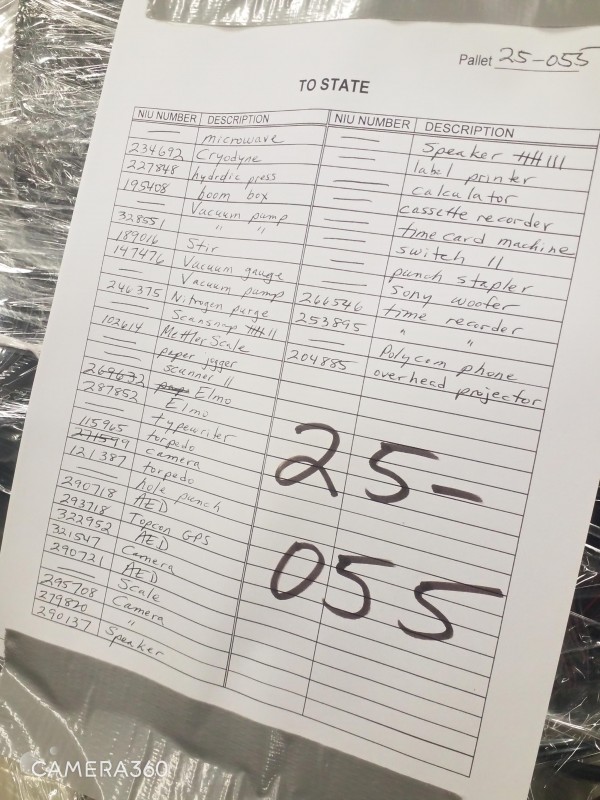 Pallet 25-055
TO STATE
NIU NUMBER DESCRIPTION NIU NUMBER DESCRIPTION
— microwave
234692 Cryodyne
227848 hydrolic press
195408 boom box
— Vacuum pump
328551 " "
189016 Stir
147476 Vacuum gauge
— Vacuum pump
246375 Nitrogen purge
— Scansnap
102614 Mettler Scale
— paper jogger
— scanner II
269632 Elmo
287852 Elmo
— typewriter
115965 torpedo
271599 camera
121387 torpedo
— hole punch
290718 AED
293718 Topcon GPS
322952 AED
321547 Camera
290721 AED
— Scale
295708 Camera
279820 "
290137 Speaker
— Speaker
— label printer
— calculator
— cassette recorder
— time card machine
— switch II
— punch stapler
— Sony woofer
266546 time recorder
253895 " "
— Polycom phone
204885 overhead projector
25-
055
CAMERA360